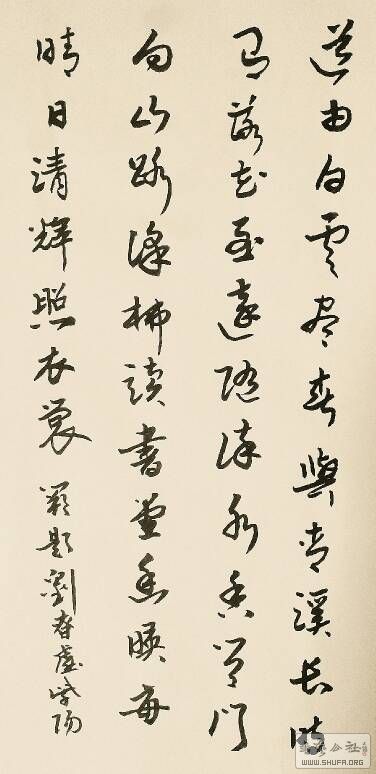 道由白雲尽春與青溪長時
有落花至遠隨流水香閑門
向山路深柳讀書堂幽映每
晴日清輝照衣裳 闕題 劉春虛 紫陽
公社
WWW.SHUFA.ORG